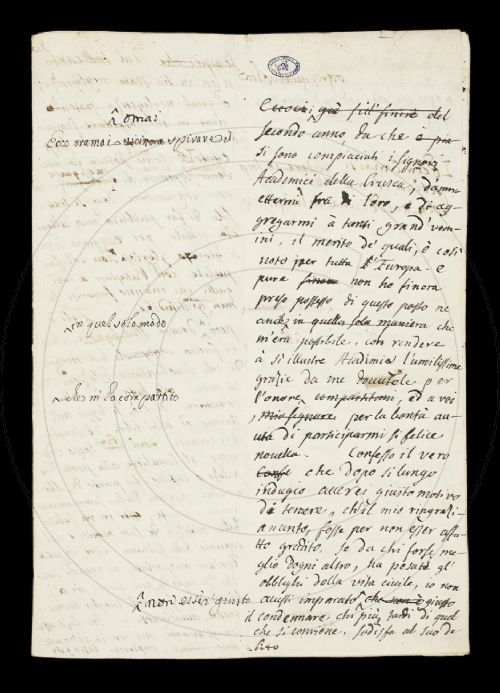 omai
Ecco oramai vicino a spirare il
in quel solo modo
che mi à compartito
non esser giusto
Eccoci, già sull' finire del
secondo anno, da che è più
si sono compiaciuti i Signori
Academici della Crusca, d'amm
ettermi frà di loro, e di ag
gregarmi à tanti grand' uom
ini, il merito de' quali, è così
noto per tutta l'Europa. e
pure finora non ho finora
preso possesso di questo posto ne
anche in quella sola maniera che
m'era possibile, con rendere
à si illustre Academia l'umilissime
grazie da me dovutole per
l'onore compartitomi, ed a voi
mio signore per la bontà av
uta di participarmi si felice
novella. Confesso il vero
Conf che dopo si lungo
indugio averei giusto motivo
di temere, ch'il mio ringrazi
amento, fosse per non esser affa
tto gradito. Se da chi forse me
glio d'ogni altro, ha pesato gl'
obblighi della vita civile, io non
avessi imparato che non è giusto
il condennare, chi più tardi di quel
che si conviene, sodisfa al suo de
bito